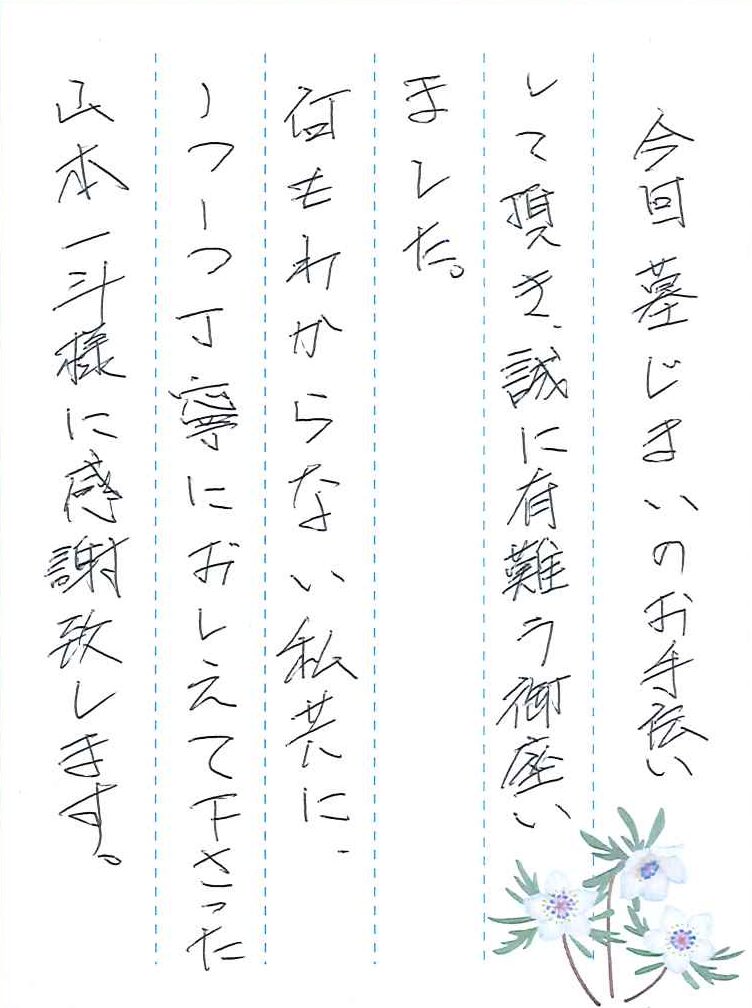 今回墓じまいのお手伝い
して頂き、誠に有難う御座い
ました。
何もわからない私共に、
一つ一つ丁寧におしえて下さった
山本一斗様に感謝致します。